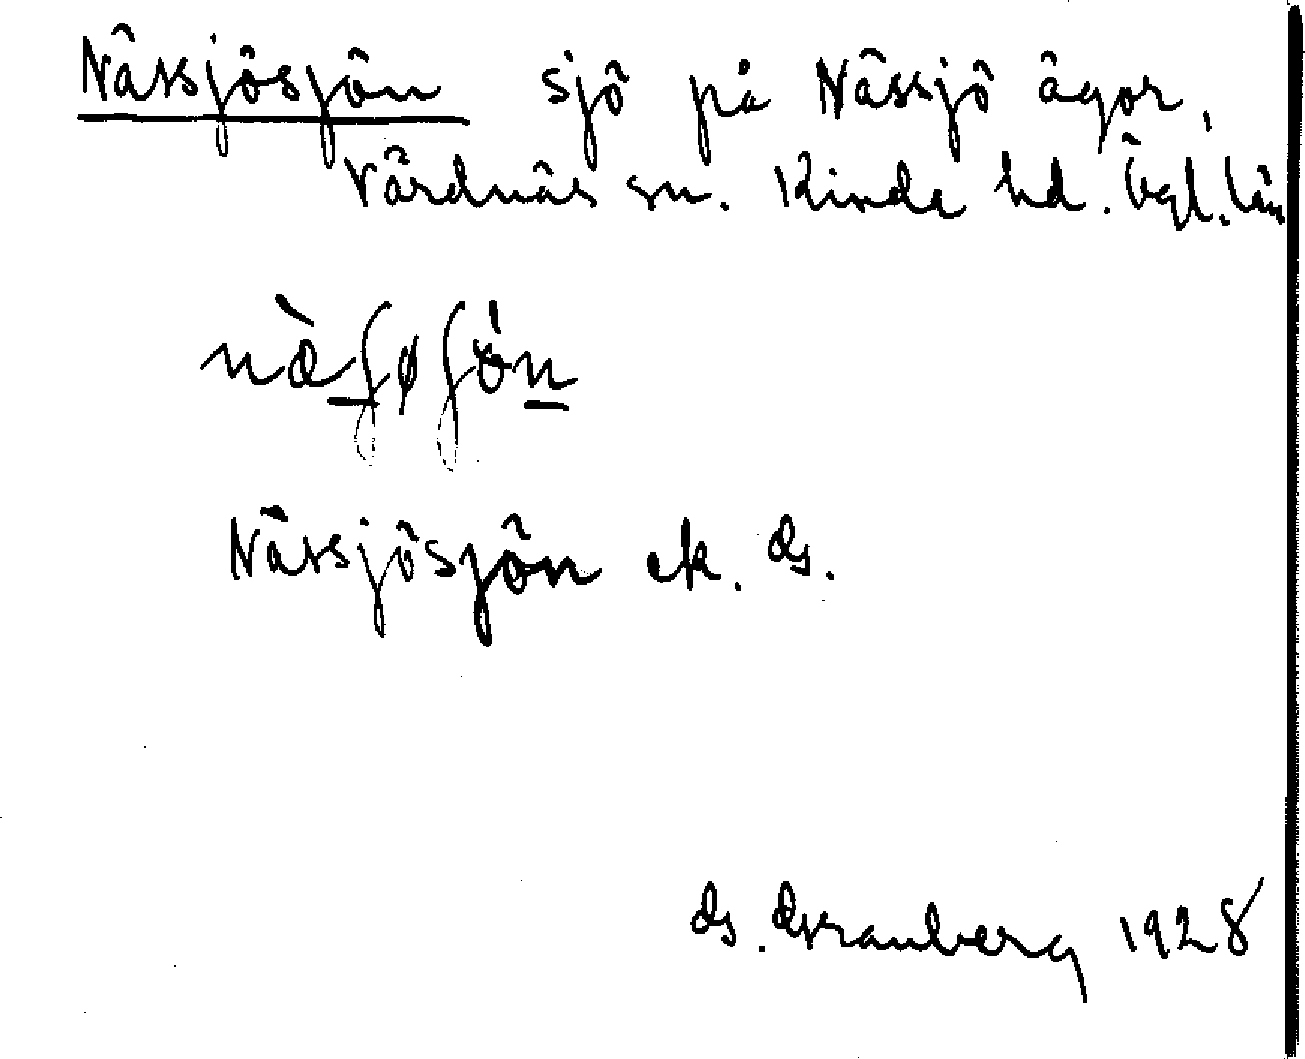 Nässjösjön sjö på Nässjö ägor,
Vårdnäs sn. Kinda hd. Ögl. län
næ̀ʃøʃö́n
Nässjösjön ek. G.
G. Granberg 1928